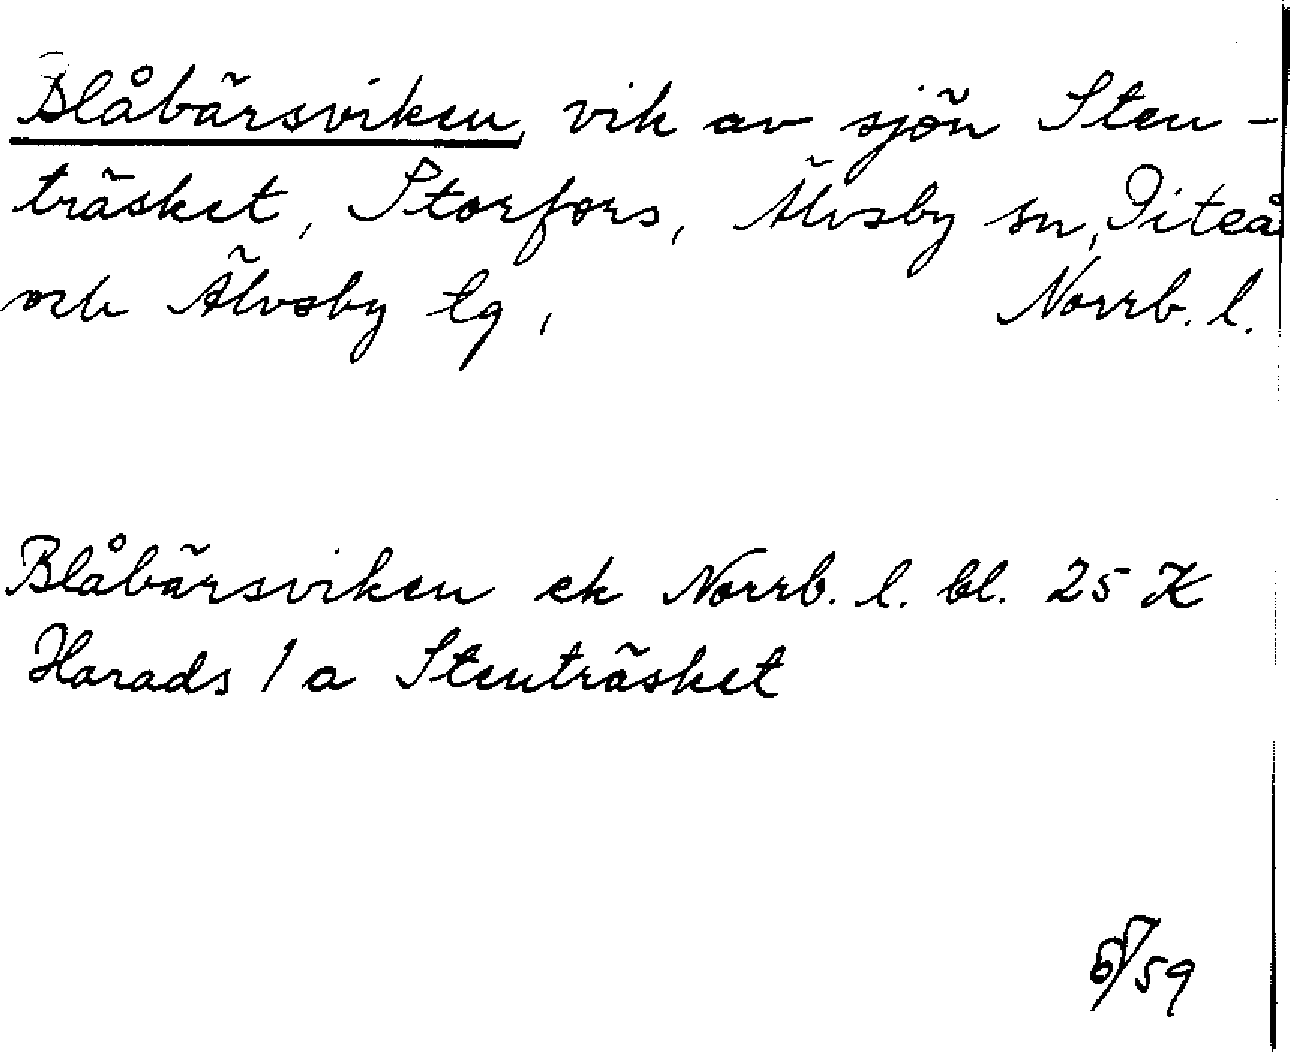 Blåbärsviken, vik av sjön Sten-
träsket, Storfors, Älvsby sn, Piteå
och Älvsby tg, Norrb. l.
Blåbärsviken ek Norrb. l. bl. 25 K
Harads / a Stenträsket
/59